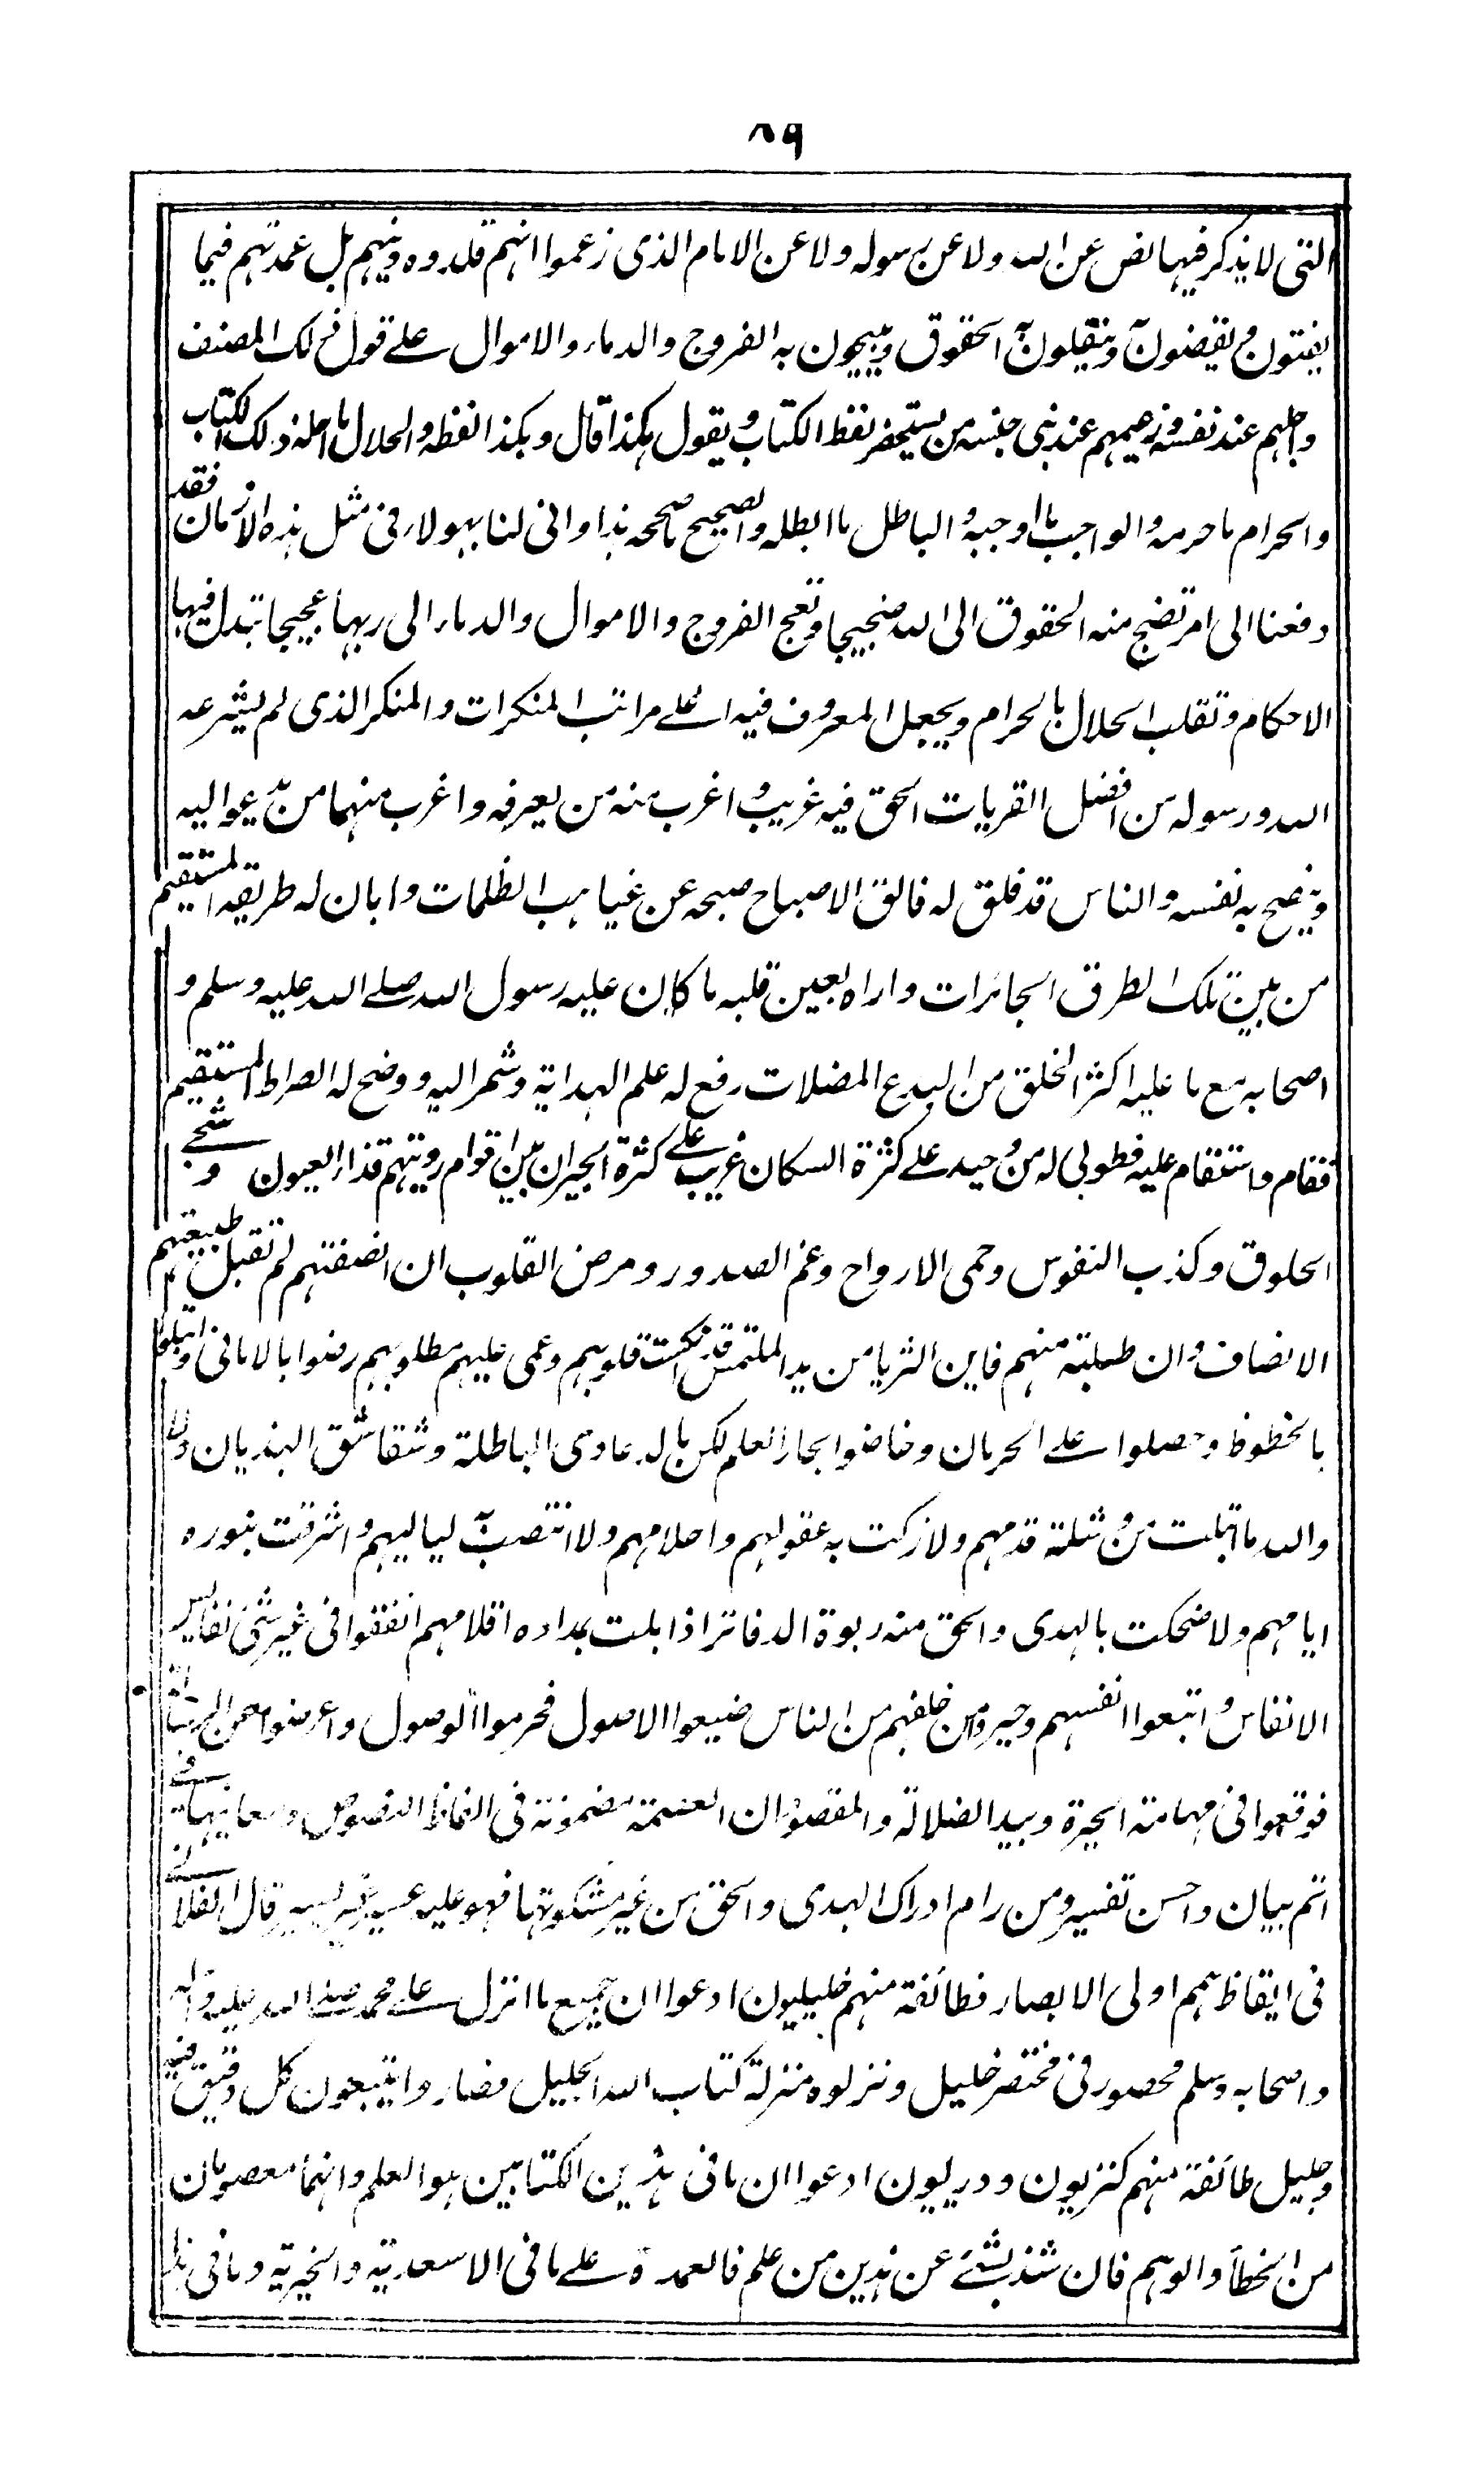 ٨٩
التى لا يذكر فيها نص عن الله ولا عن رسوله ولا عن الامام الذى زعموا انهم قلدوه دينهم بل عمدتهم فيما
يفتون ويقضون وينقلون به الحقوق ويبيحون به الفروج والدماء والاموال على قول ذلك المصنف
واجلهم عند نفسه وزعيمهم عند بنى جنسه من يستحضر لفظ الكتاب ويقول هكذا قال وهكذا لفظه والحلال ما احله ذلك الكتاب
والحرام ما حرمه والواجب ما اوجبه والباطل ما ابطله والصحيح ما صححه هذا وانى لنا بهولاء فى مثل هذه الازمان فقد
دفعنا الى امر تضج منه الحقوق الى الله ضجيجا وتعج الفروج والاموال والدماء الى ربها عجيجا تبدل فيها
الاحكام وتقلب الحلال بالحرام ويجعل المعروف فيه اعلى مراتب المنكرات والمنكر الذى لم يشرعه
الله ورسوله من افضل القربات الحق فيه غريب واغرب منه من يعرفه واغرب منهما من يدعو اليه
وينصح به نفسه والناس قد فلق له فالق الاصباح صبحه عن غياهب الظلمات وابان له طريقه المستقيم
من بين تلك الطرق الجائرات واراه بعين قلبه ما كان عليه رسول الله صلى الله عليه وسلم و
اصحابه مع ما عليه اكثر الخلق من البدع المضلات رفع له علم الهداية وشمر اليه ووضح له الصراط المستقيم
فقام واستقام عليه فطوبى له من وحيد على كثرة السكان غريب على كثرة الجيران بين اقوام رويتهم قذاء العيون وشجى
الحلوق وكذب النفوس وحمى الارواح وغم الصدور ومرض القلوب ان انصفتهم لم تقبل طبيعتهم
الانصاف وان طلبته منهم فاين الثريا من يد الملتمس قد انتكست قلوبهم وعمى عليهم مطلوبهم رضوا بالامانى وابتلوا
بالحظوظ وحصلوا على الحرمان وخاضوا بحار العلم لكن بالدعاوى الباطلة وشقاشق الهذيان ولا
والله ما ابتلت من وشلة قدمهم ولا زكت به عقولهم واحلامهم ولا ابيضت به لياليهم واشرقت بنوره
ايامهم ولا ضحكت بالهدى والحق منه ربوة الدفاتر اذا بلت بمداده اقلامهم انفقوا فى غير شئ نفايس
الانفاس واتبعوا انفسهم وحيروا من خلفهم من الناس ضيعوا الاصول فحرموا الوصول واعرضوا عن الرسالة
فوقعوا فى مهامه الحيرة وبيد الضلالة والمقصود ان العصمة مضمونة فى الفاظ النصوص ومعانيها فى
اتم بيان واحسن تفسير ومن رام ادراك الهدى والحق من غير مشكوتها فهو عليه عسير غير يسير قال الفلانى
فى ايقاظ همم اولى الابصار فطائفة منهم خليليون ادعوا ان جميع ما انزل على محمد صلى الله عليه وآله
واصحابه وسلم محصور فى مختصر خليل ونزلوه منزلة كتاب الله الجليل فصاروا يتبعون كل دقيق فيه
وجليل طائفة منهم كنزيون ودرريون ادعوا ان ما فى هذين الكتابين هو العلم وانهما معصومان
من الخطأ والوهم فان شذ بشئ عن هذين من علم فالعمدة على ما فى الاسعدية والخيرية وما فى